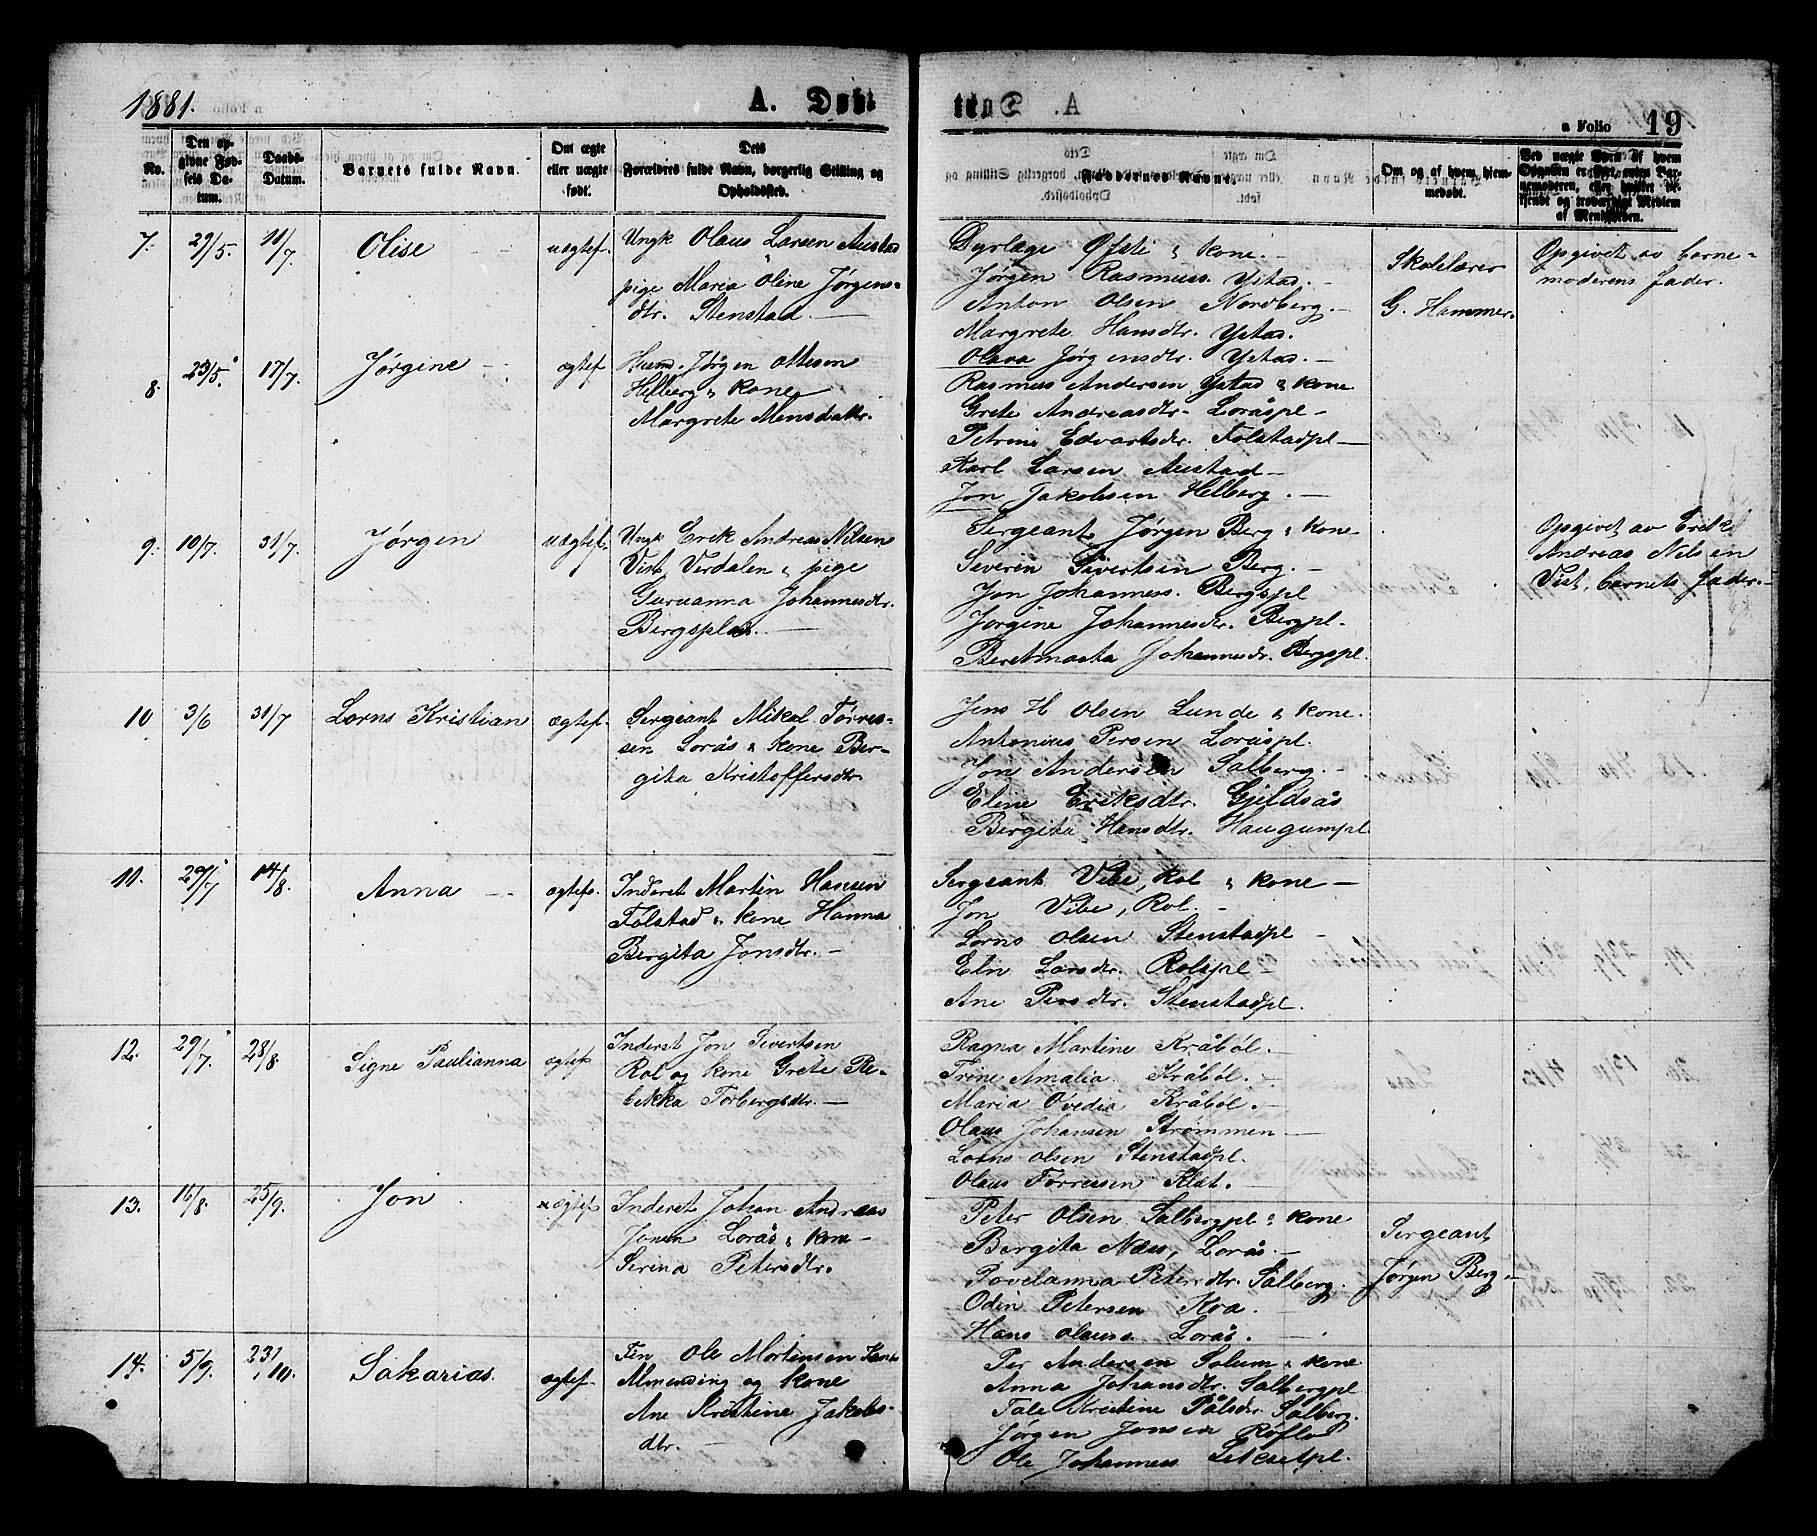 1881.
A. Døbt
a Folio 19
No.
Den op-
givne Fød-
sels Da-
tum.
Daabs-
Datum.
Barnets fulde Navn.
Om ægte
eller uægte
født.
Dets
Forældres fulde Navn, borgerlig Stilling og
Opholdssted.
Faddernes Navne.
Om og af hvem hjem-
medøbt.
Ved uægte Børn af hvem
Opgaven er skeet, enten Bar-
nemoderen, eller hvilket be-
kjendt og troværdigt Medlem
af Menigheden.
7. 29/5. 11/7. Olise uægtef.
Ungk Olaus Larsen Austad
pige Maria Oline Jørgens-
dtr. Stenstad
Dyrlæge Øfsti & kone.
Jørgen Rasmuss. Ystad.
Anton Olsen Nordberg.
Margrete Hansdtr. Ystad.
Olava Jørgensdtr. Ystad.
Skolelærer
G. Hammer.
Opgivet av barne-
moderens fader.
8. 23/5. 17/7. Jørgine ægtef
Husm. Jørgen Ottesen
Helberg & kone
Margrete Monsdatr.
Rasmus Andersen Ystad & kone
Grete Andreasdtr. Loråspl
Petrine Edvartsdr. Folstadpl
Karl Larsen Austad
Jon Jakobsen Helberg.
9. 10/7. 31/7. Jørgen uægtef.
Ungk Erik Andreas Nilsen
Vist Verdalen & pige
Guruanna Johannesdtr.
Bergsplas.
Sergeant Jørgen Berg & kone
Severin Sivertsen Berg.
Jon Johanness. Bergspl
Jørgine Johannesdtr. Bergpl.
Beretmarta Johannesdtr. Bergspl.
Opgivet av Erik
Andreas Nilsen
Vist, barnets fader.
10 3/6 31/7 Lorns Kristian ægtef.
Sergeant Mikal Tørres-
sen Lorås & kone Ber-
gita Kristoffersdtr.
Jens H Olsen Lunde & kone.
Antonius Persen Loråspl.
Jon Andersen Salberg.
Eline Eriksdtr. Gjeldsås
Bergita Hansdtr. Haugumpl.
11. 29/7 14/8. Anna ægtef.
Inderst Martin Hansen
Folstad & kone Hanna
Bergita Jonsdtr.
Sergeant Vibe, Rol & kone
Jon Vibe, Rol.
Lorns Olsen Stenstadpl
Elen Larsdtr. Rolspl
Ane Persdtr. Stenstadpl.
12. 29/7. 28/8. Signe Paulianna ægtef
Inderst Jon Sivertsen
Rol og kone Grete Re-
bekka Torbergsdtr.
Ragna Martine Kråbøl.
Trine Amalia Kråbøl.
Maria Ovedia Kråbøl.
Olaus Johansen Strømmen
Lorns Olsen Stenstadpl.
Olaus Tørresen Klat.
13. 16/8. 25/9. Jon ægtef
Inderst Johan Andreas
Jonsen Lorås & kone
Serina Petersdtr.
Peter Olsen Salbergpl & kone
Bergita Næss, Lorås.
Povelanna Petersdtr. Salberg.
Odin Petersen Kva.
Hans Olauss. Lorås.
Sergeant
Jørgen Berg
14. 5/9. 23/10. Sakarias ægtef
Ole Mortensen
Almenning og kone
Ane Kristine Jakobs-
dtr.
Per Andersen Solum & kone
Anna Johansdtr. Salbergpl
Tale Kristine Pålsdr. Salberg.
Jørgen Jonsen
Ole Johanness